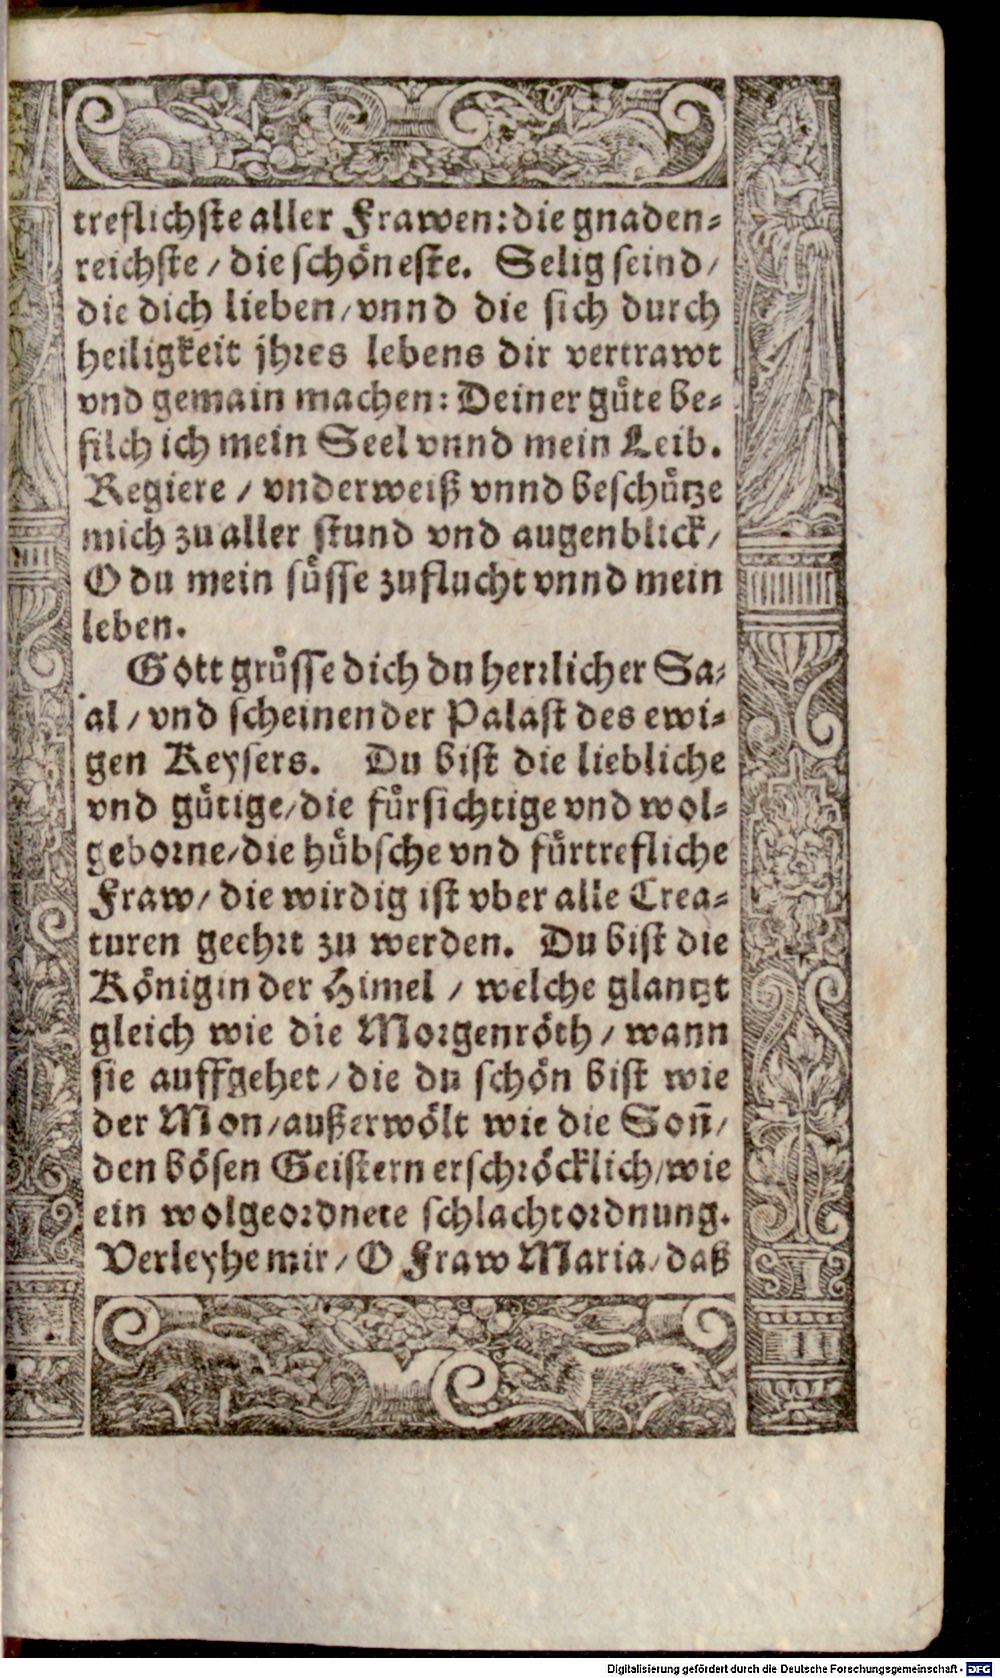 treflichste aller Frawen: die gnaden-
reichste / die schöneste. Selig seind /
die dich lieben / vnnd die sich durch
heiligkeit jhres lebens dir vertrawt
vnd gemain machen: Deiner güte be-
filch ich mein Seel vnnd mein Leib.
Regiere / vnderweiß vnnd beschütze
mich zu aller stund vnd augenblick /
O du mein süsse zuflucht vnnd mein
leben.
Gott grüsse dich du herrlicher Sa-
al / vnd scheinender Palast des ewi-
gen Keysers. Du bist die liebliche
vnd gütige / die fürsichtige vnd wol-
geborne / die hübsche vnd fürtrefliche
Fraw / die wirdig ist vber alle Crea-
turen geehrt zu werden. Du bist die
Königin der Himel / welche glantzt
gleich wie die Morgenröth / wann
sie auffgehet / die du schön bist wie
der Mon / außerwölt wie die Son̄ /
den bösen Geistern erschröcklich / wie
ein wolgeordnete schlachtordnung.
Verleyhe mir / O Fraw Maria / daß
Digitalisierung gefördert durch die Deutsche Forschungsgemeinschaft - DFG